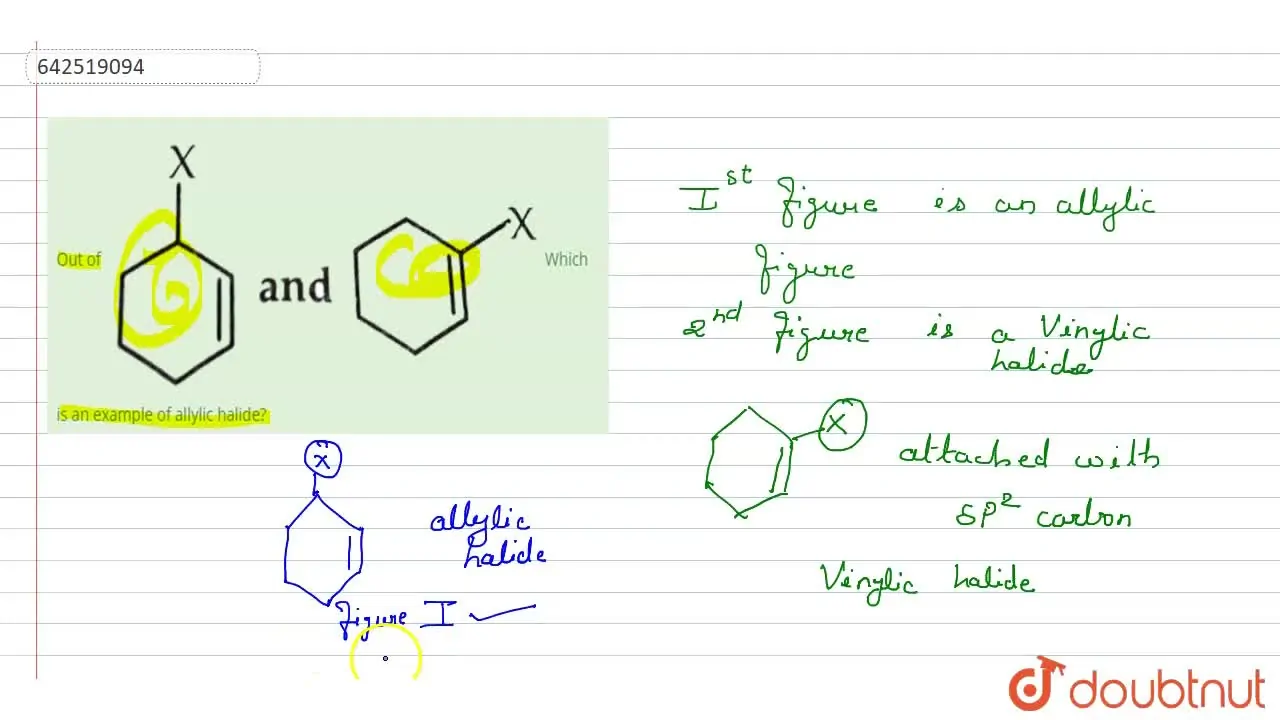 642519094
X
X
Out of
and
Which
is an example of allylic halide?
Ist figure is an allylic
figure
2nd figure is a Vinylic
halide
X
X
attached with
SP2 carbon
allylic
halide
Vinylic halide
figure I ✓
doubtnut